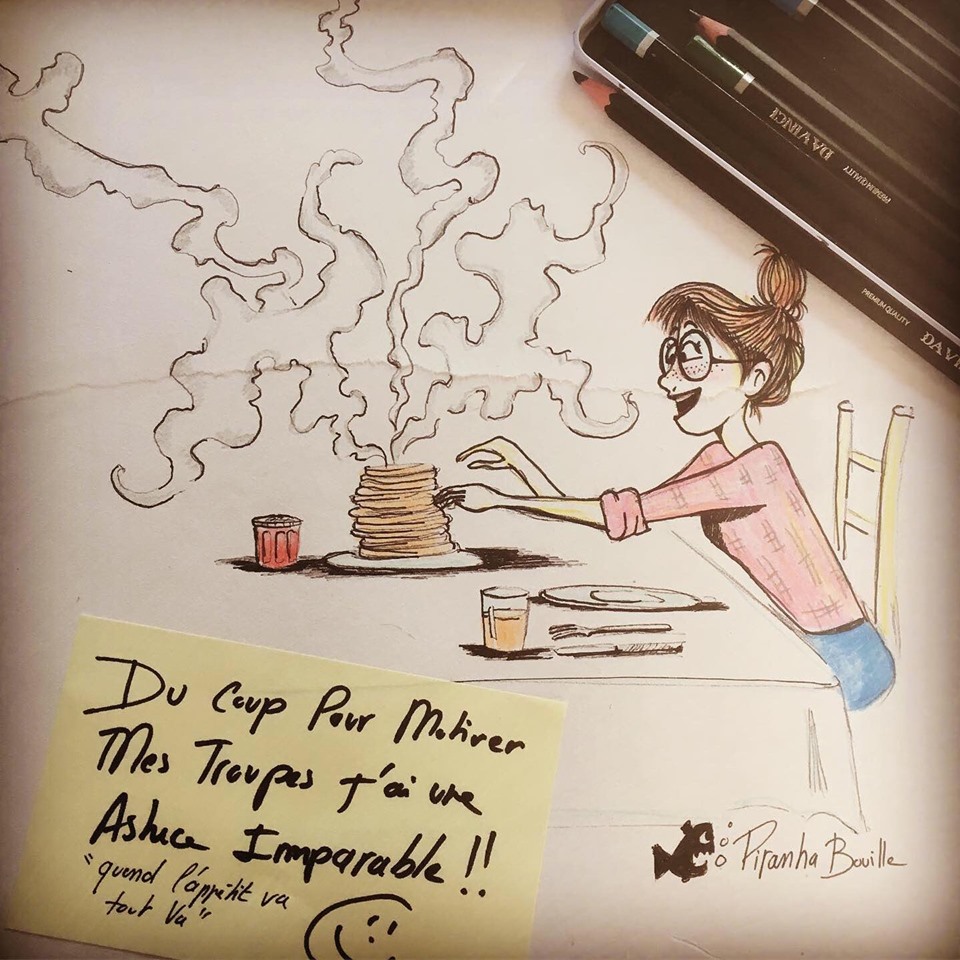 DAVINCI
PREMIUM QUALITY
PREMIUM QUALITY
DAVIN
Du Coup Pour Motiver
Mes Troupes j'ai une
Astuce Imparable !!
"quand l'appétit va
tout va"
Piranha Bouille